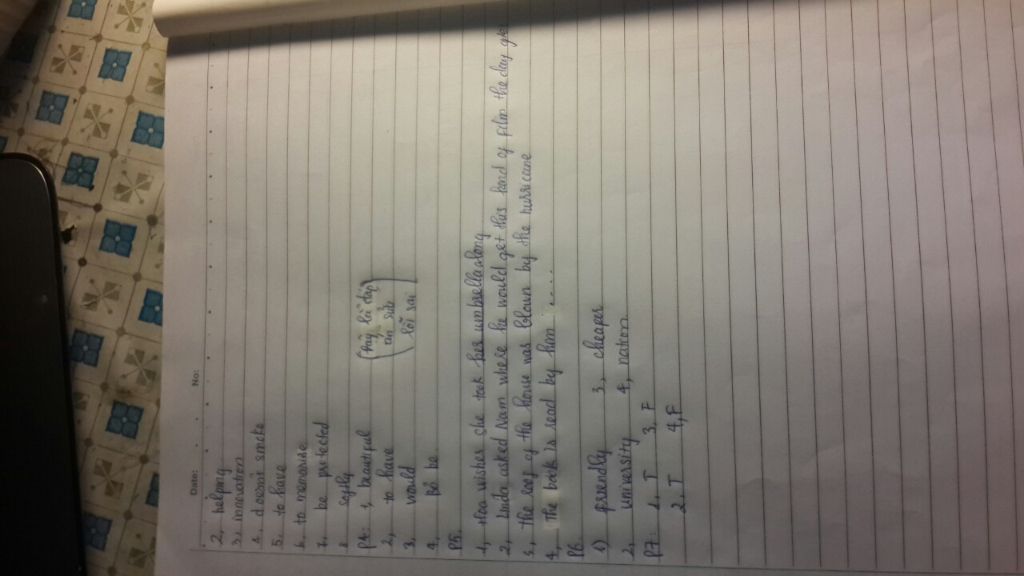 Date: No:
2, helping
3, innovation
4. doesn't smoke
5. to have
6. to memorise
7. be protected
8 softly
P4: 1, beautiful
2, to have
3. would
4, be
P5.
1, Hoa wishes she took her umbrella along
2, Linda asked Nam where he would get this kind of film the day
3, the roof of the house was blown by the hurricane
4 The book is read by him .....
P6
1) friendly 3, cheaper
2, university 4, nation
P7. 1, T 3, F
2, T 4, F